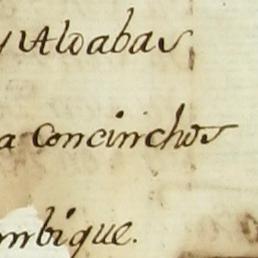 y Aloabas
a Concinchos
mbique.